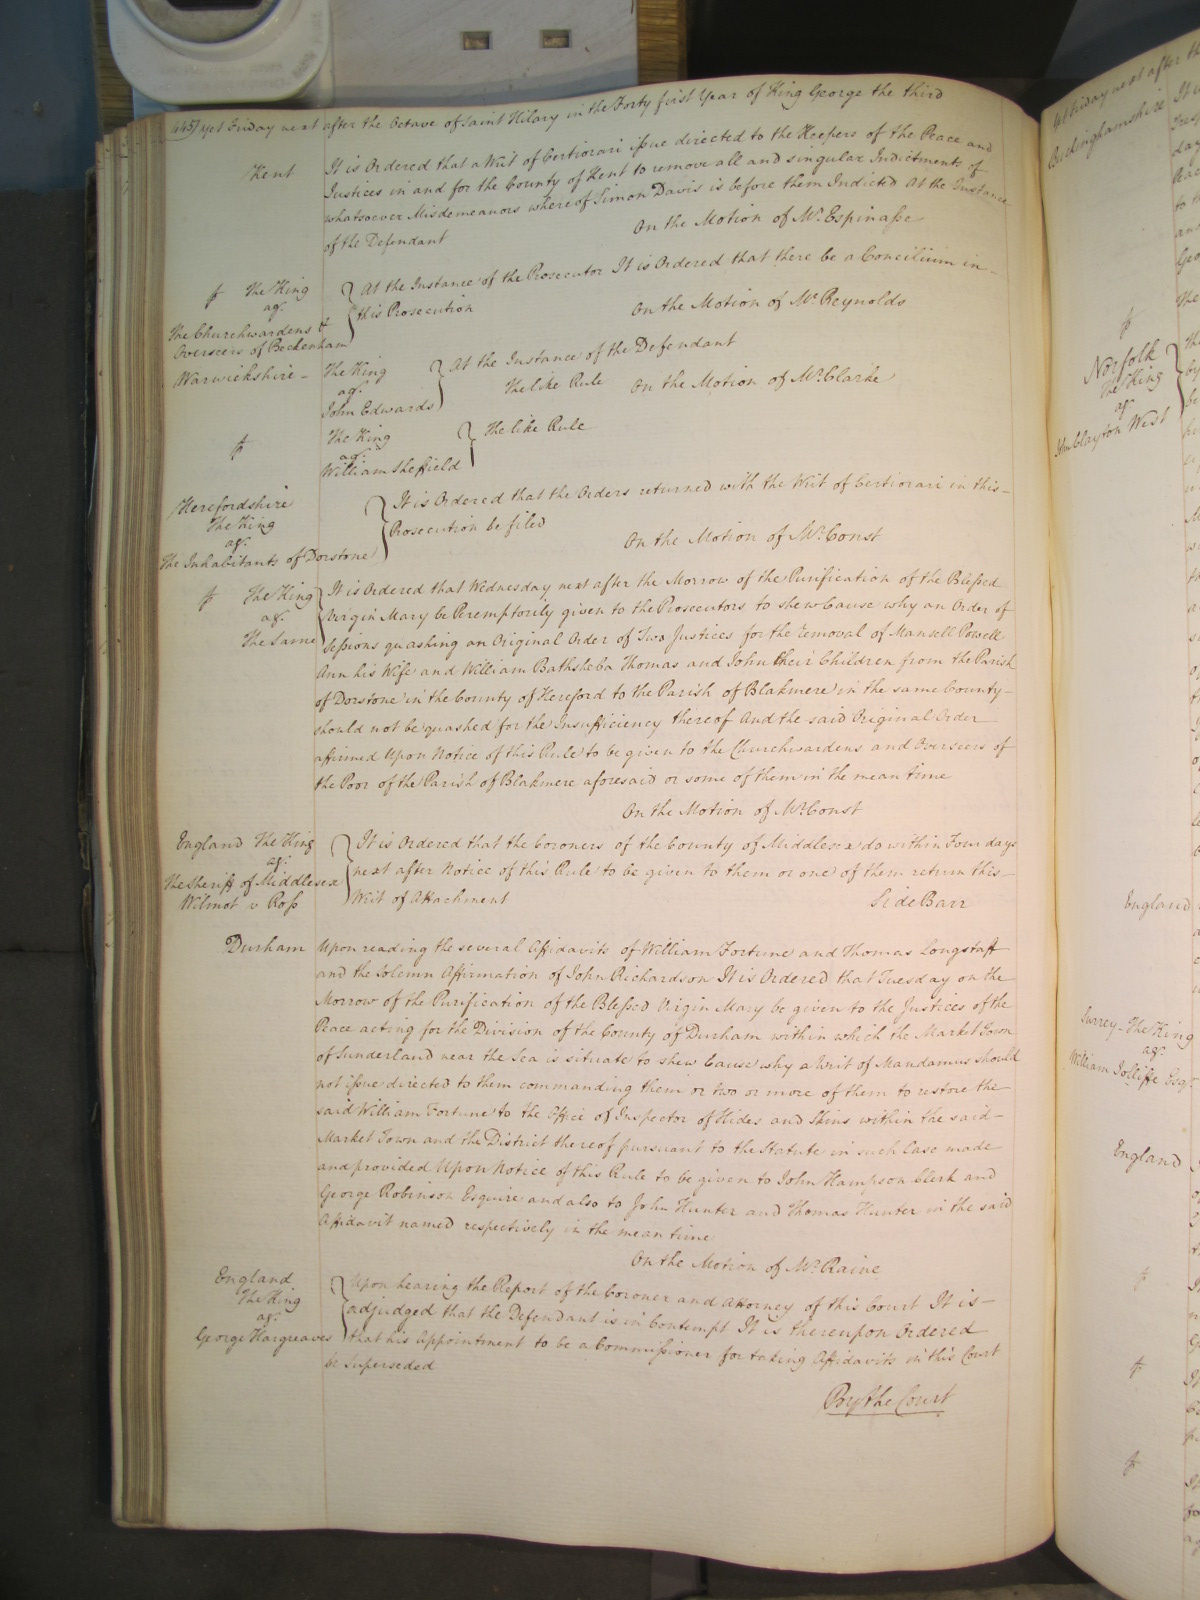 445 Yet Friday next after the Octave of Saint Hilary in the Forty first Year of King George the third
Kent
It is Ordered that a Writ of Certiorari issue directed to the Keepers of the Peace and
Justices in and for the County of Kent to remove all and singular Indictments of
whatsoever Misdemeanors whereof Simon Davis is before them Indicted At the Instance
of the Defendant
On the Motion of Mr. Espinasse
The King
agt.
The Churchwardens &
Overseers of Beckenham
At the Instance of the Prosecutor It is Ordered that there be a Concilium in -
this Prosecution
On the Motion of Mr. Reynolds
Warwickshire -
The King
agt.
John Edwards
At the Instance of the Defendant
The like Rule On the Motion of Mr. Clarke
The King
agt.
William Sheffield
The like Rule
Herefordshire
The King
agt.
The Inhabitants of Dorstone
It is Ordered that the Orders returned with the Writ of Certiorari in this -
Prosecution be filed
On the Motion of Mr. Const
The King
agt.
The Same
It is Ordered that Wednesday next after the Morrow of the Purification of the Blessed
Virgin Mary be Peremptorily given to the Prosecutors to shew Cause why an Order of
Sessions quashing an Original Order of Two Justices for the removal of Mansell Powell
Ann his Wife and William Bathsheba Thomas and John their Children from the Parish
of Dorstone in the County of Hereford to the Parish of Blakmere in the same County -
should not be quashed for the Insufficiency thereof And the said Original Order
affirmed Upon Notice of this Rule to be given to the Churchwardens and Overseers of
the Poor of the Parish of Blakmere aforesaid or some of them in the mean time
On the Motion of Mr. Const
England The King
agt.
The Sheriff of Middlesex
Wilmot v Ross
It is Ordered that the Coroners of the County of Middlesex do within Four days
next after Notice of this Rule to be given to them or one of them return this -
Writ of Attachment
Side Barr
Durham
Upon reading the several Affidavits of William Fortune and Thomas Longstaff
and the Solemn Affirmation of John Richardson It is Ordered that Tuesday on the
Morrow of the Purification of the Blessed Virgin Mary be given to the Justices of the
Peace acting for the Division of the County of Durham within which the Market Town
of Sunderland near the Sea is situate to shew Cause why a Writ of Mandamus should
not issue directed to them commanding them or two or more of them to restore the
said William Fortune to the Office of Inspector of Hides and Skins within the said -
Market Town and the District thereof pursuant to the Statute in such Case made
and provided Upon Notice of this Rule to be given to John Hampson Clerk and
George Robinson Esquire and also to John Hunter and Thomas Hunter in the said
Affidavit named respectively in the mean time
On the Motion of Mr. Raine
England
The King
agt.
George Hargreaves
Upon hearing the Report of the Coroner and Attorney of this Court It is -
adjudged that the Defendant is in Contempt It is thereupon Ordered
that his Appointment to be a Commissioner for taking Affidavits in this Court
be Superseded
By the Court
Yet Friday next after the
Buckinghamshire
Norfolk
The King
agt.
John Clayton West
England
Surrey - The King
agt.
William Jolliffe Esqr.
England